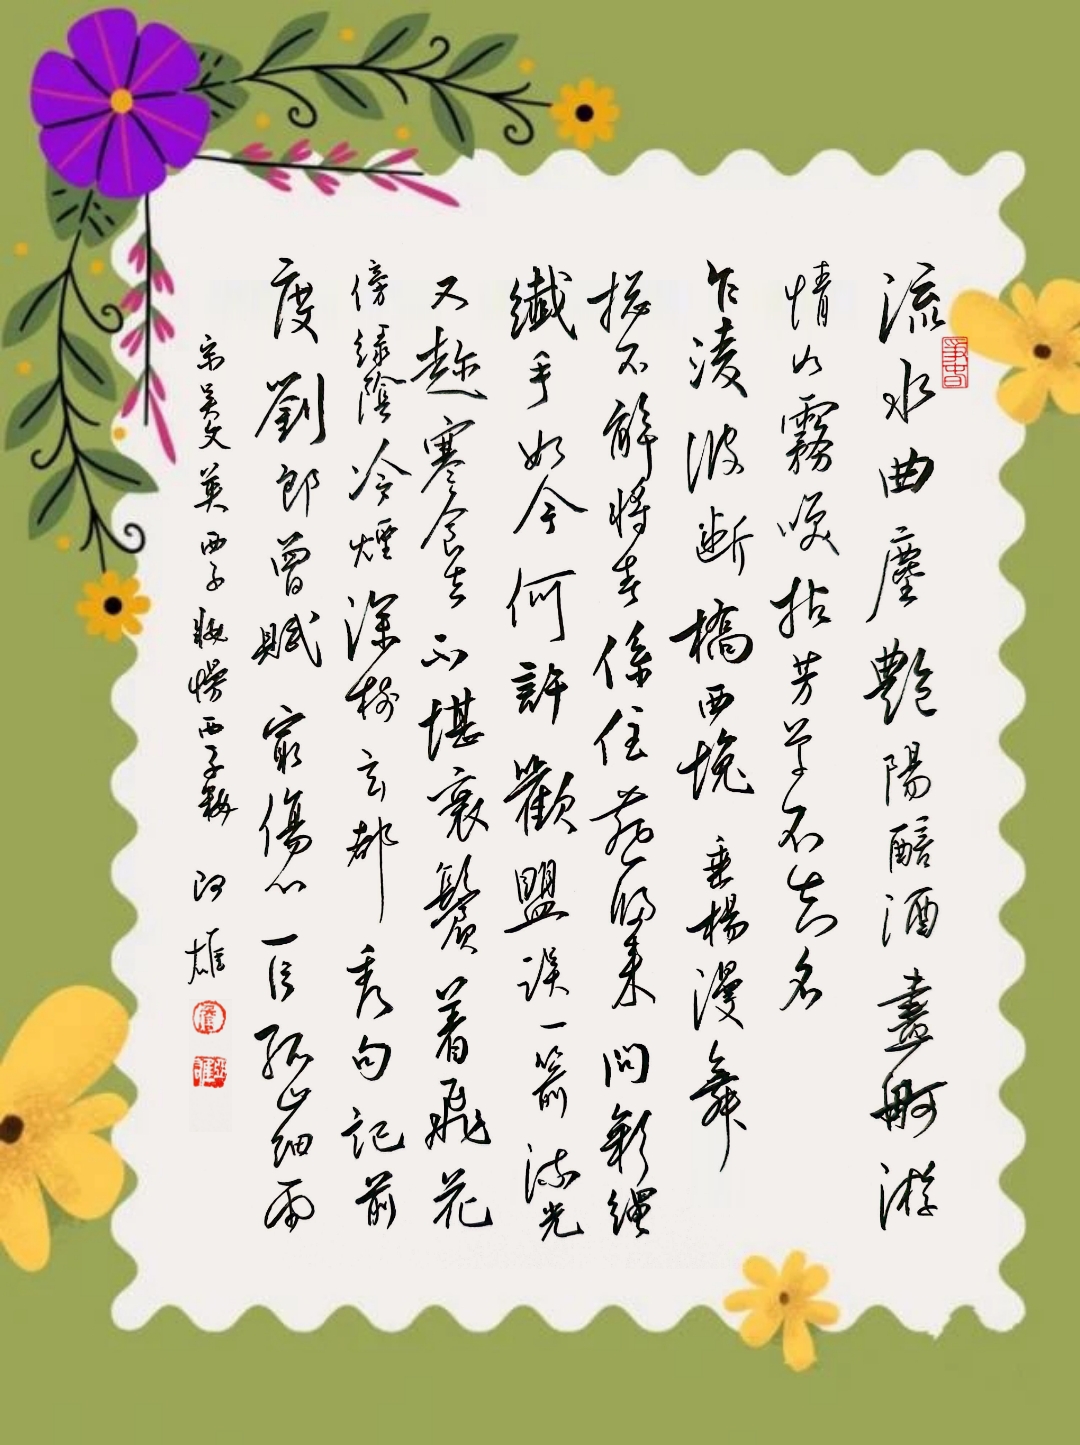 流水曲塵艷陽醅酒畫舸游
情如霧咲拈芳草不知名
乍淩波断橋西堍垂楊漫舞
揔不解將春係住燕歸來問彩繩
纖手如今何許歡盟誤一箭流光
又趂寒食去不堪衰鬢着飛花
傍綠陰冷煙深樹玄都秀句記前
度劉郎曾賦最傷心一片孤山細雨
宋吴文英西子粧慢西子粧 阿雄